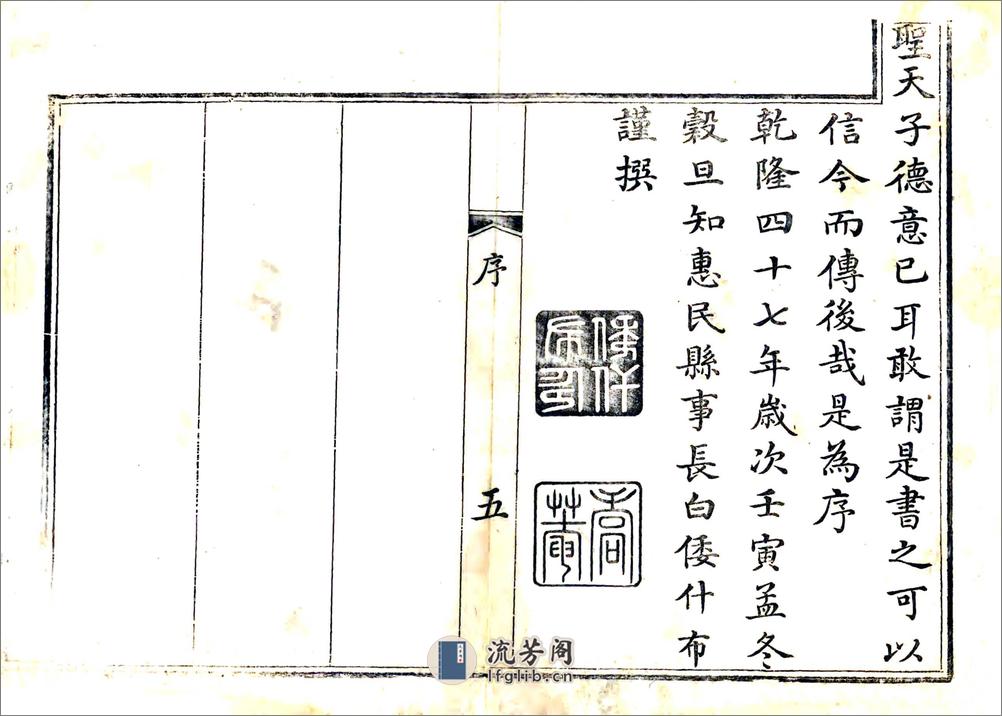 聖天子德意已耳敢謂是書之可以
信今而傳後哉是為序
乾隆四十七年歲次壬寅孟冬
穀旦知惠民縣事長白倭什布
謹撰
倭什布
序
五
流芳阁
lfglib.cn